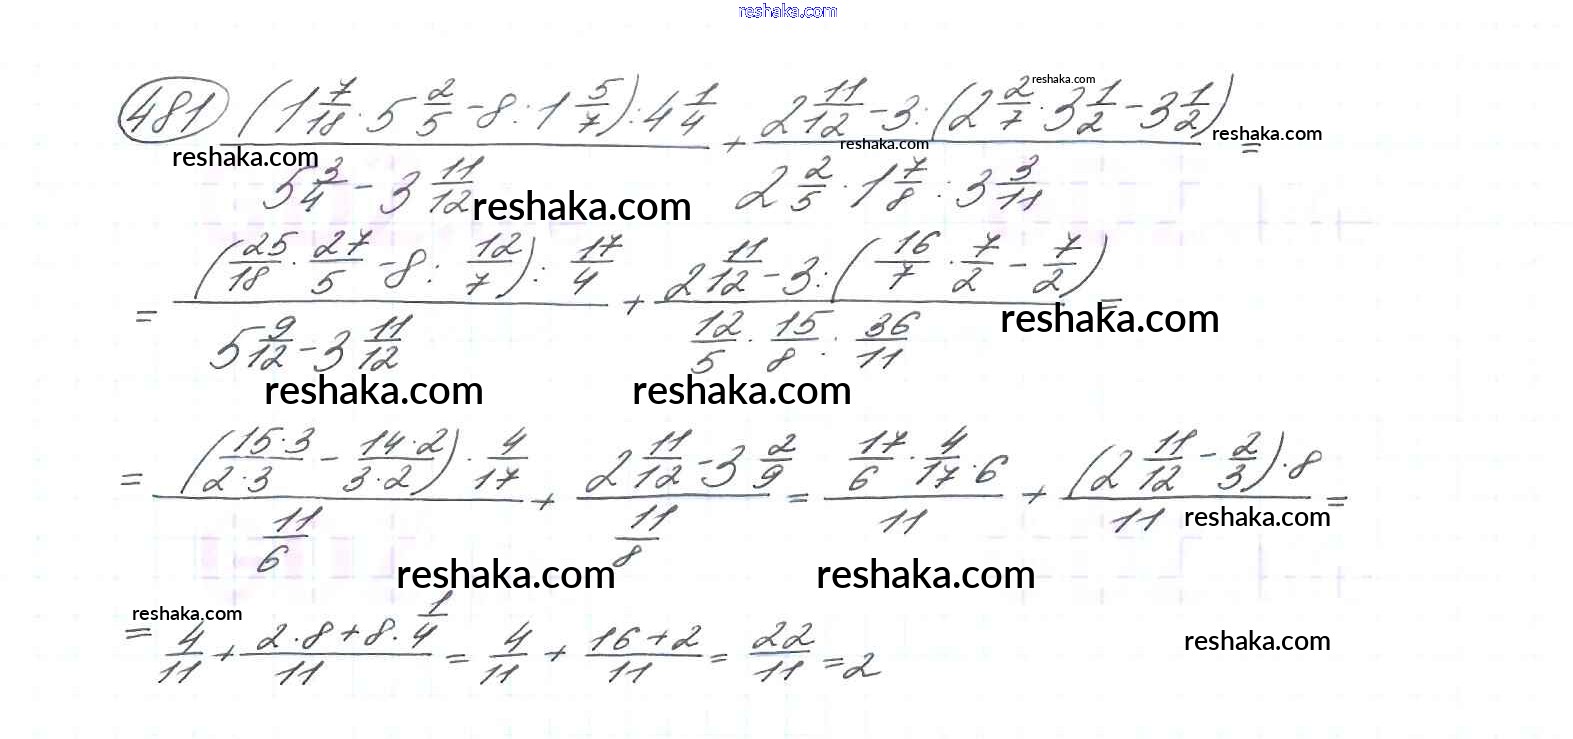 reshaka.com
481) (1 7/18 · 5 2/5 - 8 : 1 5/7) : 4 1/4 / (5 3/4 - 3 11/12) + 2 11/12 - 3 : (2 2/7 · 3 1/2 - 3 1/2) / (2 2/5 · 1 7/8 : 3 3/11) =
reshaka.com
reshaka.com
reshaka.com
reshaka.com
reshaka.com
= (25/18 · 27/5 - 8 : 12/7) : 17/4 / (5 9/12 - 3 11/12) + 2 11/12 - 3 : (16/7 · 7/2 - 7/2) / (12/5 · 15/8 : 36/11) =
reshaka.com
reshaka.com
reshaka.com
= (15·3/2·3 - 14·2/3·2) · 4/17 / (11/6) + 2 11/12 - 3 2/9 / (11/8) = 17/6 · 4/17 · 6 / 11 + (2 11/12 - 2/3) · 8 / 11 =
reshaka.com
reshaka.com
reshaka.com
reshaka.com
= 4/11 + 2·8+8·1/4 / 11 = 4/11 + 16+2 / 11 = 22/11 = 2
reshaka.com